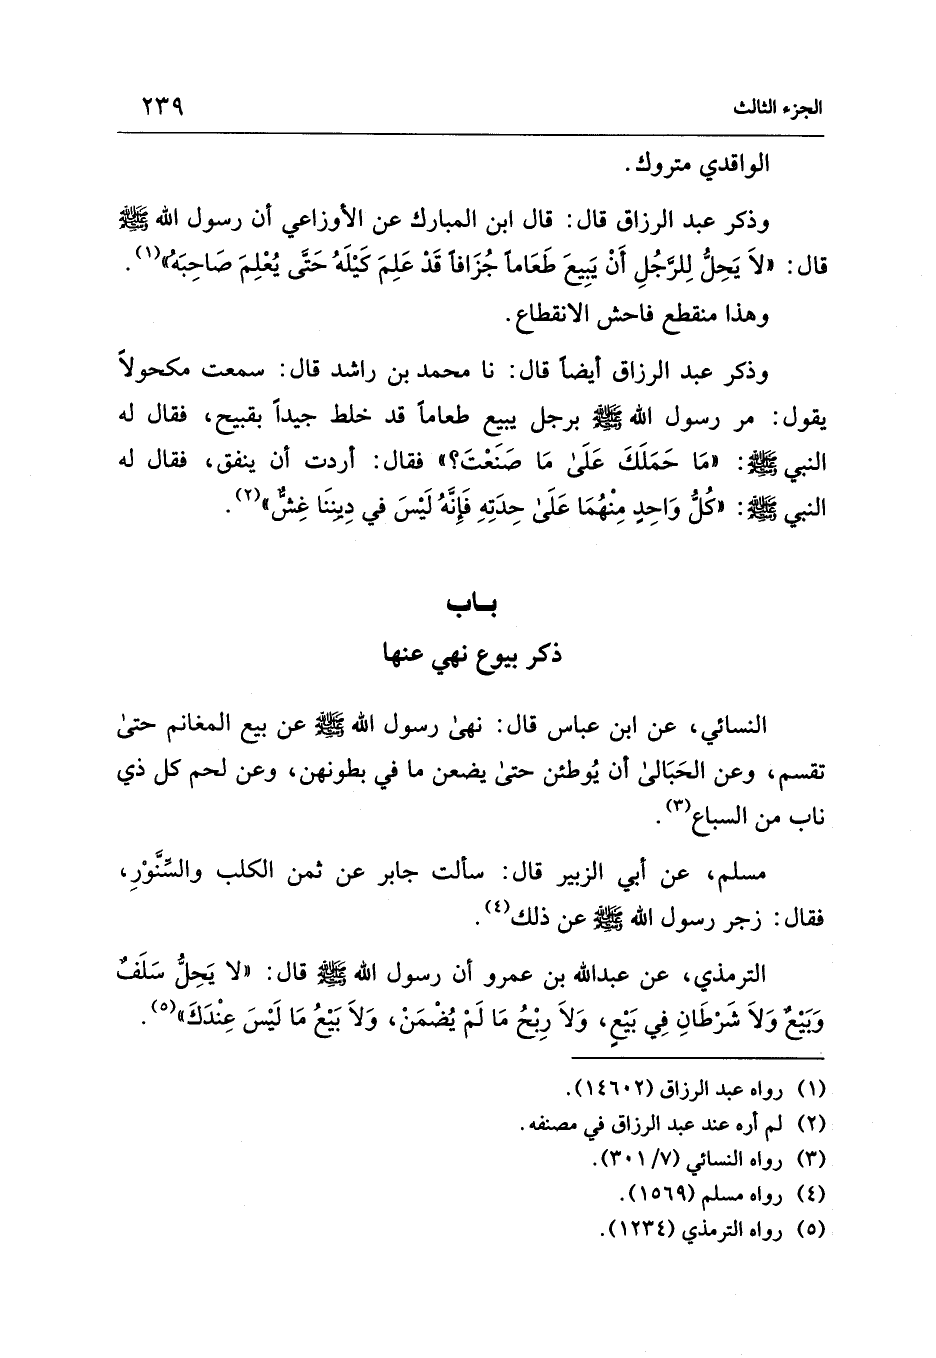 الجزء الثالث ٢٣٩
الواقدي متروك.
وذكر عبد الرزاق قال: قال ابن المبارك عن الأوزاعي أن رسول الله ﷺ
قال: «لاَ يَحِلُّ لِلرَّجُلِ أَنْ يَبِيعَ طَعَاماً جُزَافاً قَدْ عَلِمَ كَيْلَهُ حَتَّى يُعْلِمَ صَاحِبَهُ»(١).
وهذا منقطع فاحش الانقطاع.
وذكر عبد الرزاق أيضاً قال: نا محمد بن راشد قال: سمعت مكحولاً
يقول: مر رسول الله ﷺ برجل يبيع طعاماً قد خلط جيداً بقبيح، فقال له
النبي ﷺ: «مَا حَمَلَكَ عَلَىٰ مَا صَنَعْتَ؟» فقال: أردت أن ينفق، فقال له
النبي ﷺ: «كُلُّ وَاحِدٍ مِنْهُمَا عَلَىٰ حِدَتِهِ فَإِنَّهُ لَيْسَ في دِينِنَا غِشٌّ»(٢).
بـاب
ذكر بيوع نهي عنها
النسائي، عن ابن عباس قال: نهىٰ رسول الله ﷺ عن بيع المغانم حتىٰ
تقسم، وعن الحَبَالىٰ أن يُوطئن حتىٰ يضعن ما في بطونهن، وعن لحم كل ذي
ناب من السباع(٣).
مسلم، عن أبي الزبير قال: سألت جابر عن ثمن الكلب والسِّنَّوْرِ،
فقال: زجر رسول الله ﷺ عن ذلك(٤).
الترمذي، عن عبدالله بن عمرو أن رسول الله ﷺ قال: «لا يَحِلُّ سَلَفٌ
وَبَيْعٌ وَلاَ شَرْطَانِ فِي بَيْعٍ، وَلاَ رِبْحُ مَا لَمْ يُضْمَنْ، وَلاَ بَيْعُ مَا لَيْسَ عِنْدَكَ»(٥).
(١) رواه عبد الرزاق (١٤٦٠٢).
(٢) لم أره عند عبد الرزاق في مصنفه.
(٣) رواه النسائي (٧/ ٣٠١).
(٤) رواه مسلم (١٥٦٩).
(٥) رواه الترمذي (١٢٣٤).